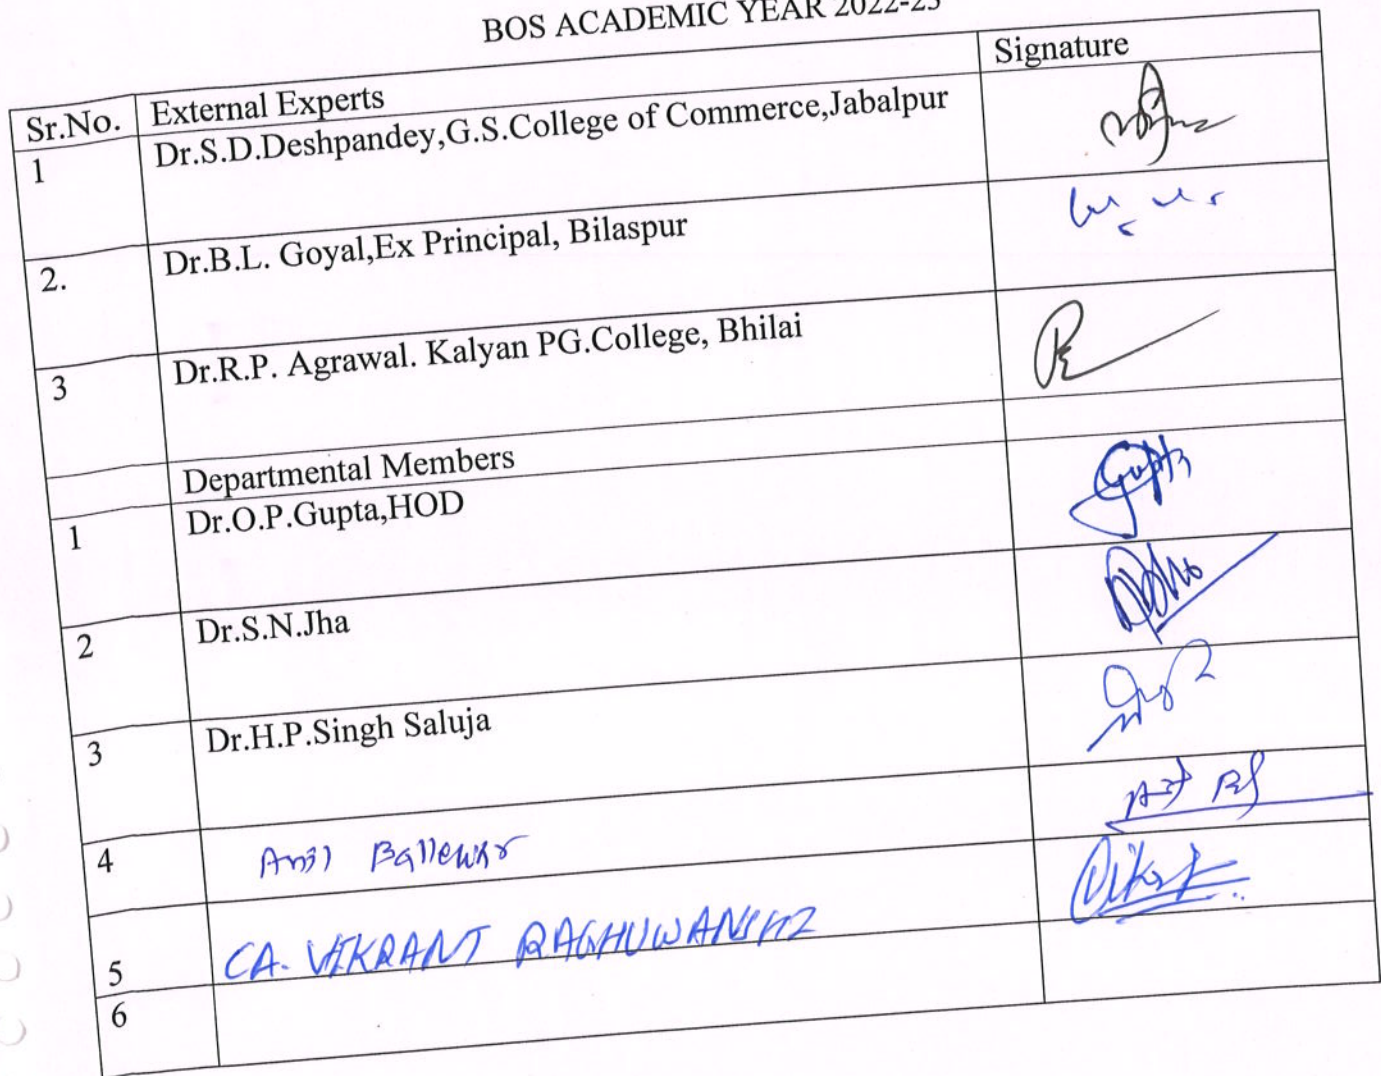 BOS ACADEMIC YEAR 2022-23
Sr.No. External Experts Signature
1 Dr.S.D.Deshpandey,G.S.College of Commerce,Jabalpur
2. Dr.B.L. Goyal,Ex Principal, Bilaspur
3 Dr.R.P. Agrawal. Kalyan PG.College, Bhilai
Departmental Members
1 Dr.O.P.Gupta,HOD Gupta
2 Dr.S.N.Jha
3 Dr.H.P.Singh Saluja
4 Anil Ballewar
5 CA. VIKRANT RAGHUWANSHI
6